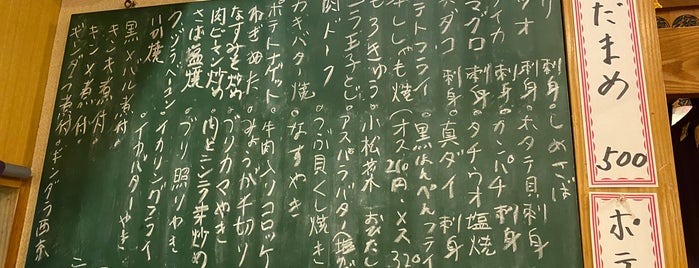 だまめ 500
ポテ
刺身。しめさば
タオ 刺身。ホタテ貝刺身
アイカ 刺身。カンパチ 刺身
マグロ 刺身。タチウオ塩焼
ダコ 刺身。真ダイ 刺身
テトフライ。黒はんぺんフライ
ししゃも焼(オス210円・メス320
もろきゅう。小松菜 おひたし
王子ど。アスパラバター(塩
肉トーク。つぶ貝くし焼き
カキバター焼。なすやき
ポテト 。牛肉入りコロッケ
ねぎぬた。みょうが千切り
なすみそ炒め。ブリカマやき
肉ピーマン炒め 肉とニンニク芽炒め
さば塩焼。ブリ照りやき
イカリングフライ
いか焼。イカバターやき
黒メバル煮付。
キンキ煮付。
キンメ煮付。
ギンダラ煮付。ギンダラ西京